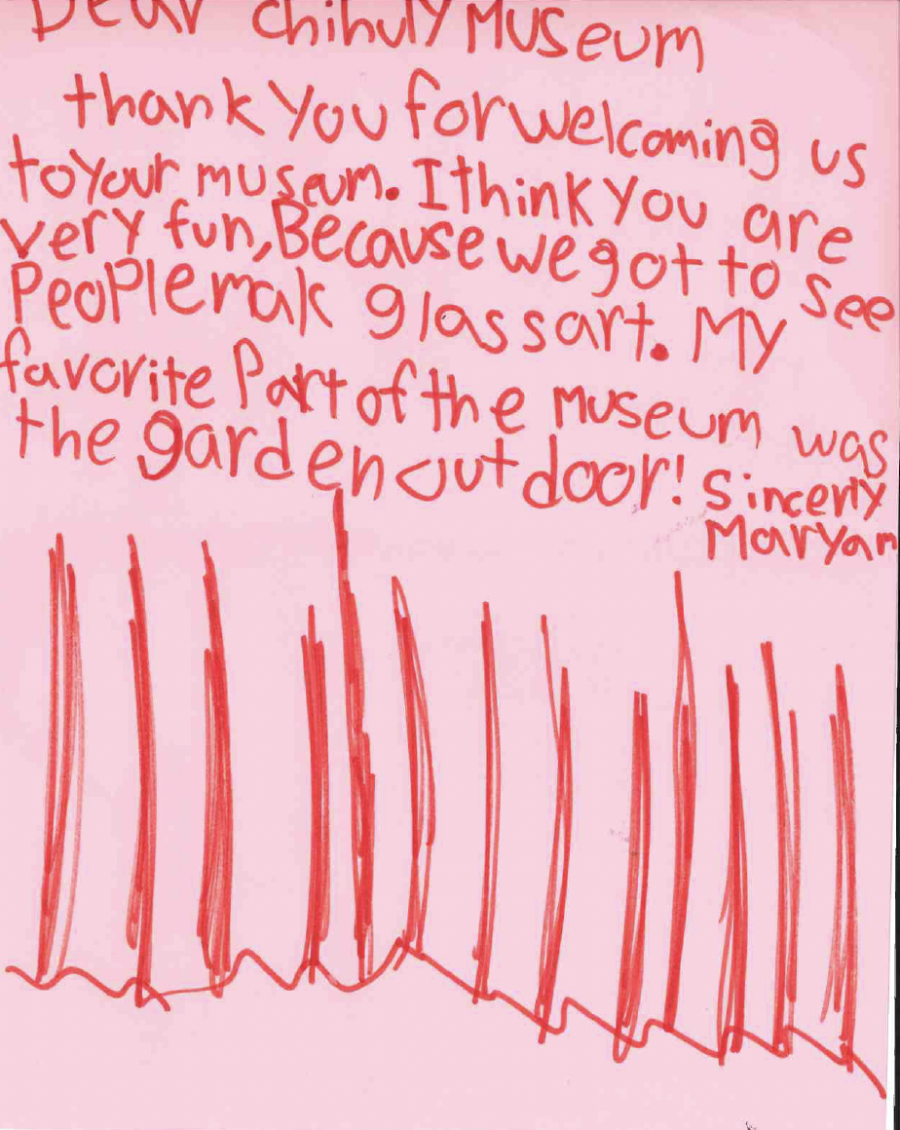 Dear Chihuly Museum
thank You for welcoming us
to Your museum. I think You are
very fun, Because we got to see
People mak glass art. My
favorite Part of the museum was
the garden out door! Sincerly
Maryam